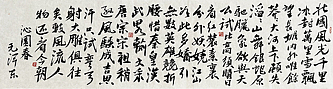 北國風光千里
冰封万里雪飘
望長城内外惟餘
莽莽大河上下頓失
滔滔山舞銀蛇原
公試比高須晴日
看紅裝素裹
分外妖嬈江山
無數英雄競折
腰惜秦皇漢
武略輸文采
唐宗宋祖稍
汗只識彎弓
射大雕俱往
矣數風流人
物還看今朝
沁園春
毛澤東